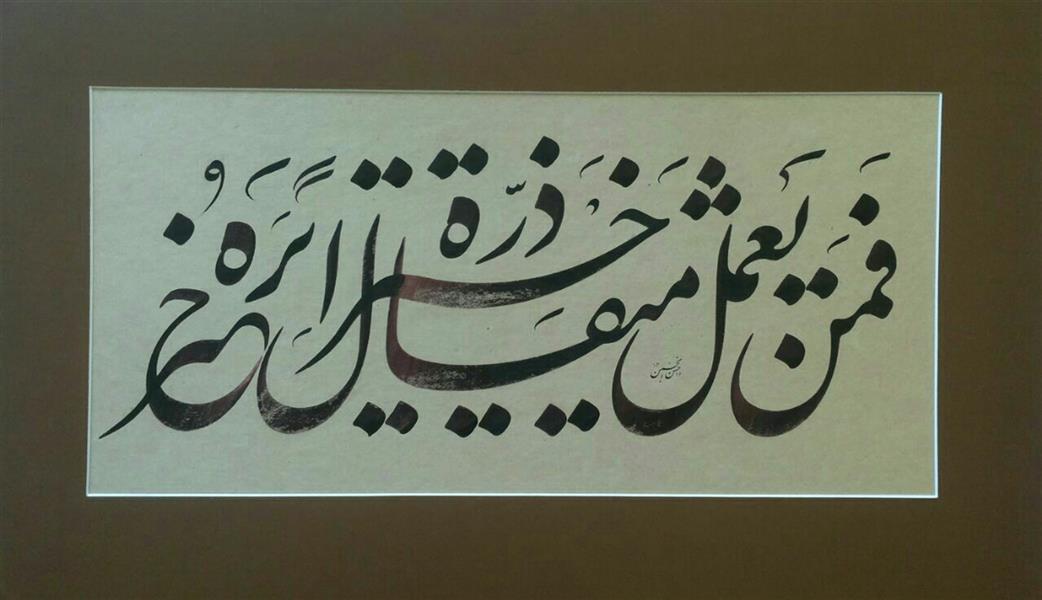 فَمَن يَعمَل مِثقالَ ذَرّةٍ خَيراً يَرَهُ